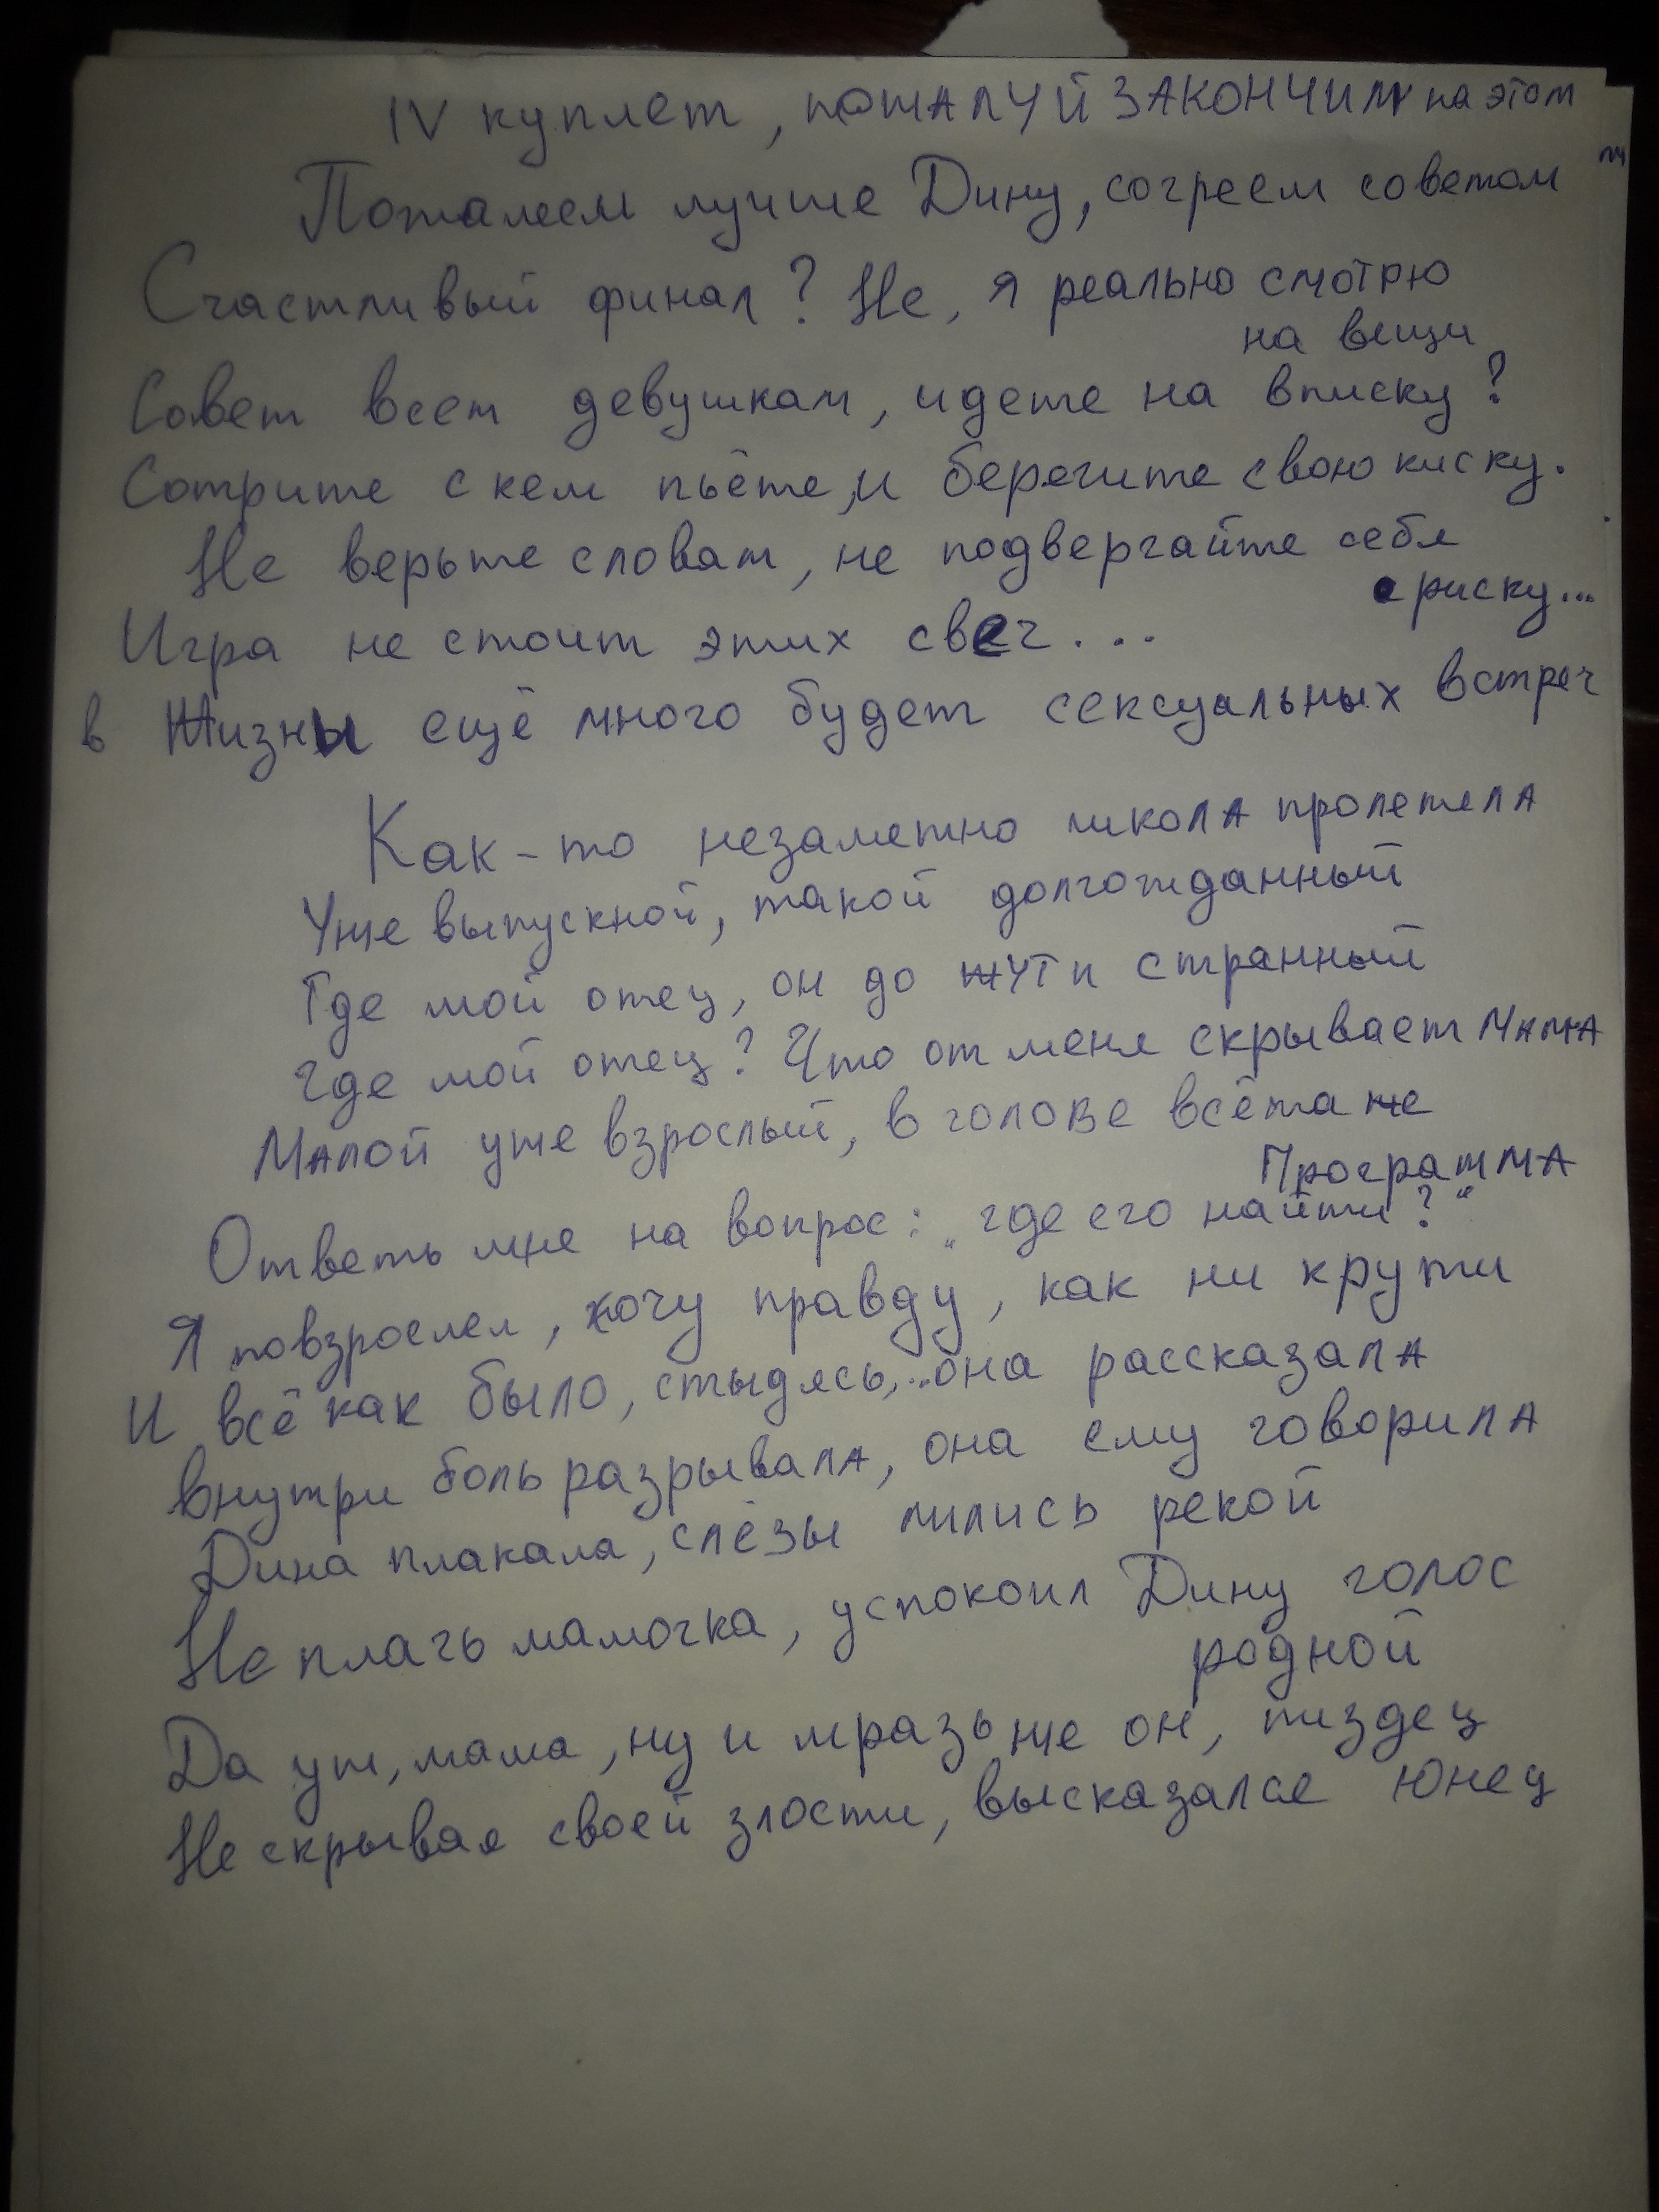 IV куплет, пожалуй закончим на этом
Пожалеем лучше Дину, согреем советом
Счастливый финал? Не, я реально смотрю
на вещи
Совет всем девушкам, идете на вписку?
Сотрите с кем пьёте, и берегите свою киску.
Не верьте словам, не подвергайте себя
риску...
Игра не стоит этих свеч...
в Жизни ещё много будет сексуальных встреч
Как-то незаметно школа пролетела
Уже выпускной, такой долгожданный
Где мой отец, он до жути странный
Где мой отец? Что от меня скрывает мама
Малой уже взрослый, в голове всё та же
Программа
Ответь мне на вопрос: „где его найти?“
Я повзрослел, хочу правду, как ни крути
И всё как было, стыдясь,.. она рассказала
Внутри боль разрывала, она ему говорила
Дина плакала, слёзы лились рекой
Не плачь мамочка, успокоил Дину голос
родной
Да уж, мама, ну и мразь же он, пиздец
Не скрывая своей злости, высказался юнец